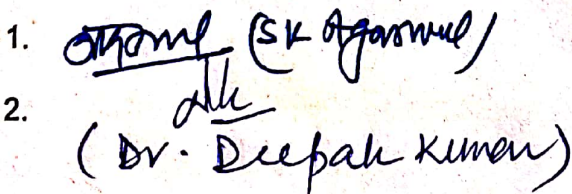 1. अग्रवाल (SK Agarwal)
2.
(Dr. Deepak Kumar)